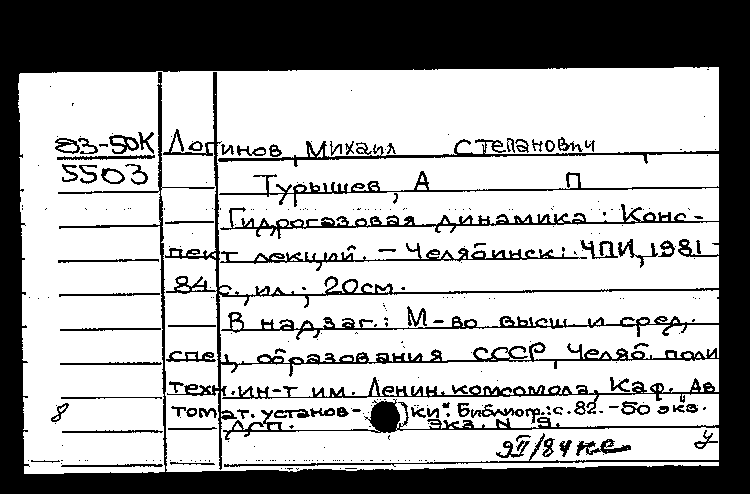 ДЗ-50К Логинов, Михаил Степанович
5503 Турышев, А П
Гидрогазовая динамика : Конс-
пект лекций. – Челябинск: ЧПИ, 1981 –
84 с., ил.; 20см.
В надзаг.: М-во высш и сред.
спец. образования СССР, Челяб. поли
техн. ин-т им. Ленин. комсомола, Каф. "Ав
8 томат. установ- ки". Библиогр.: с. 82. – 50 экз.
ДСП. Экз. N 9.
У